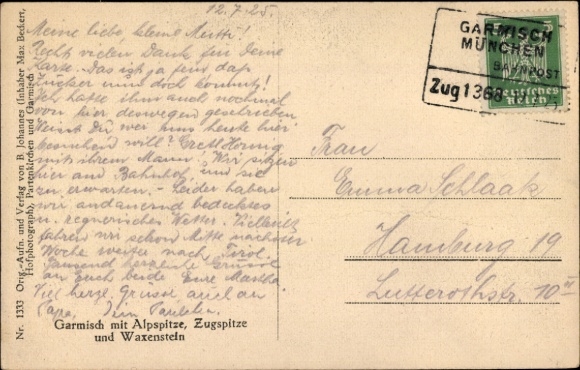 12.7.25.
Meine liebe, kleine Mutti!
Recht vielen Dank für Deine
Karte. Das ist ja fein, daß
und doch kommt!
Ich hatte ihm auch nochmal
von hier deswegen geschrieben.
Weißt Du wer uns heute hier
besuchen will? Gretl
mit ihrem Mann. Wir sitzen
hier am Bahnhof, um sie
zu erwarten. - Leider haben
wir andauernd bedecktes
u. regnerisches Wetter. Vielleicht
fahren wir schon Mitte nächster
Woche weiter nach Tirol.
Tausend herzliche Grüsse
an Euch beide Eure Martha.
Viel herzl. Grüsse auch an
Papa, Dein
Garmisch mit Alpspitze, Zugspitze
und Waxenstein
Nr. 1333 Orig.-Aufn. und Verlag von B. Johannes (Inhaber Max Beckert,
Hofphotograph), Partenkirchen und Garmisch
GARMISCH
MÜNCHEN
BAHNPOST
Zug 1368
Deutsches
Reich
Frau
Emma Schlaak
Hamburg 19
Lutterothstr. 10 II